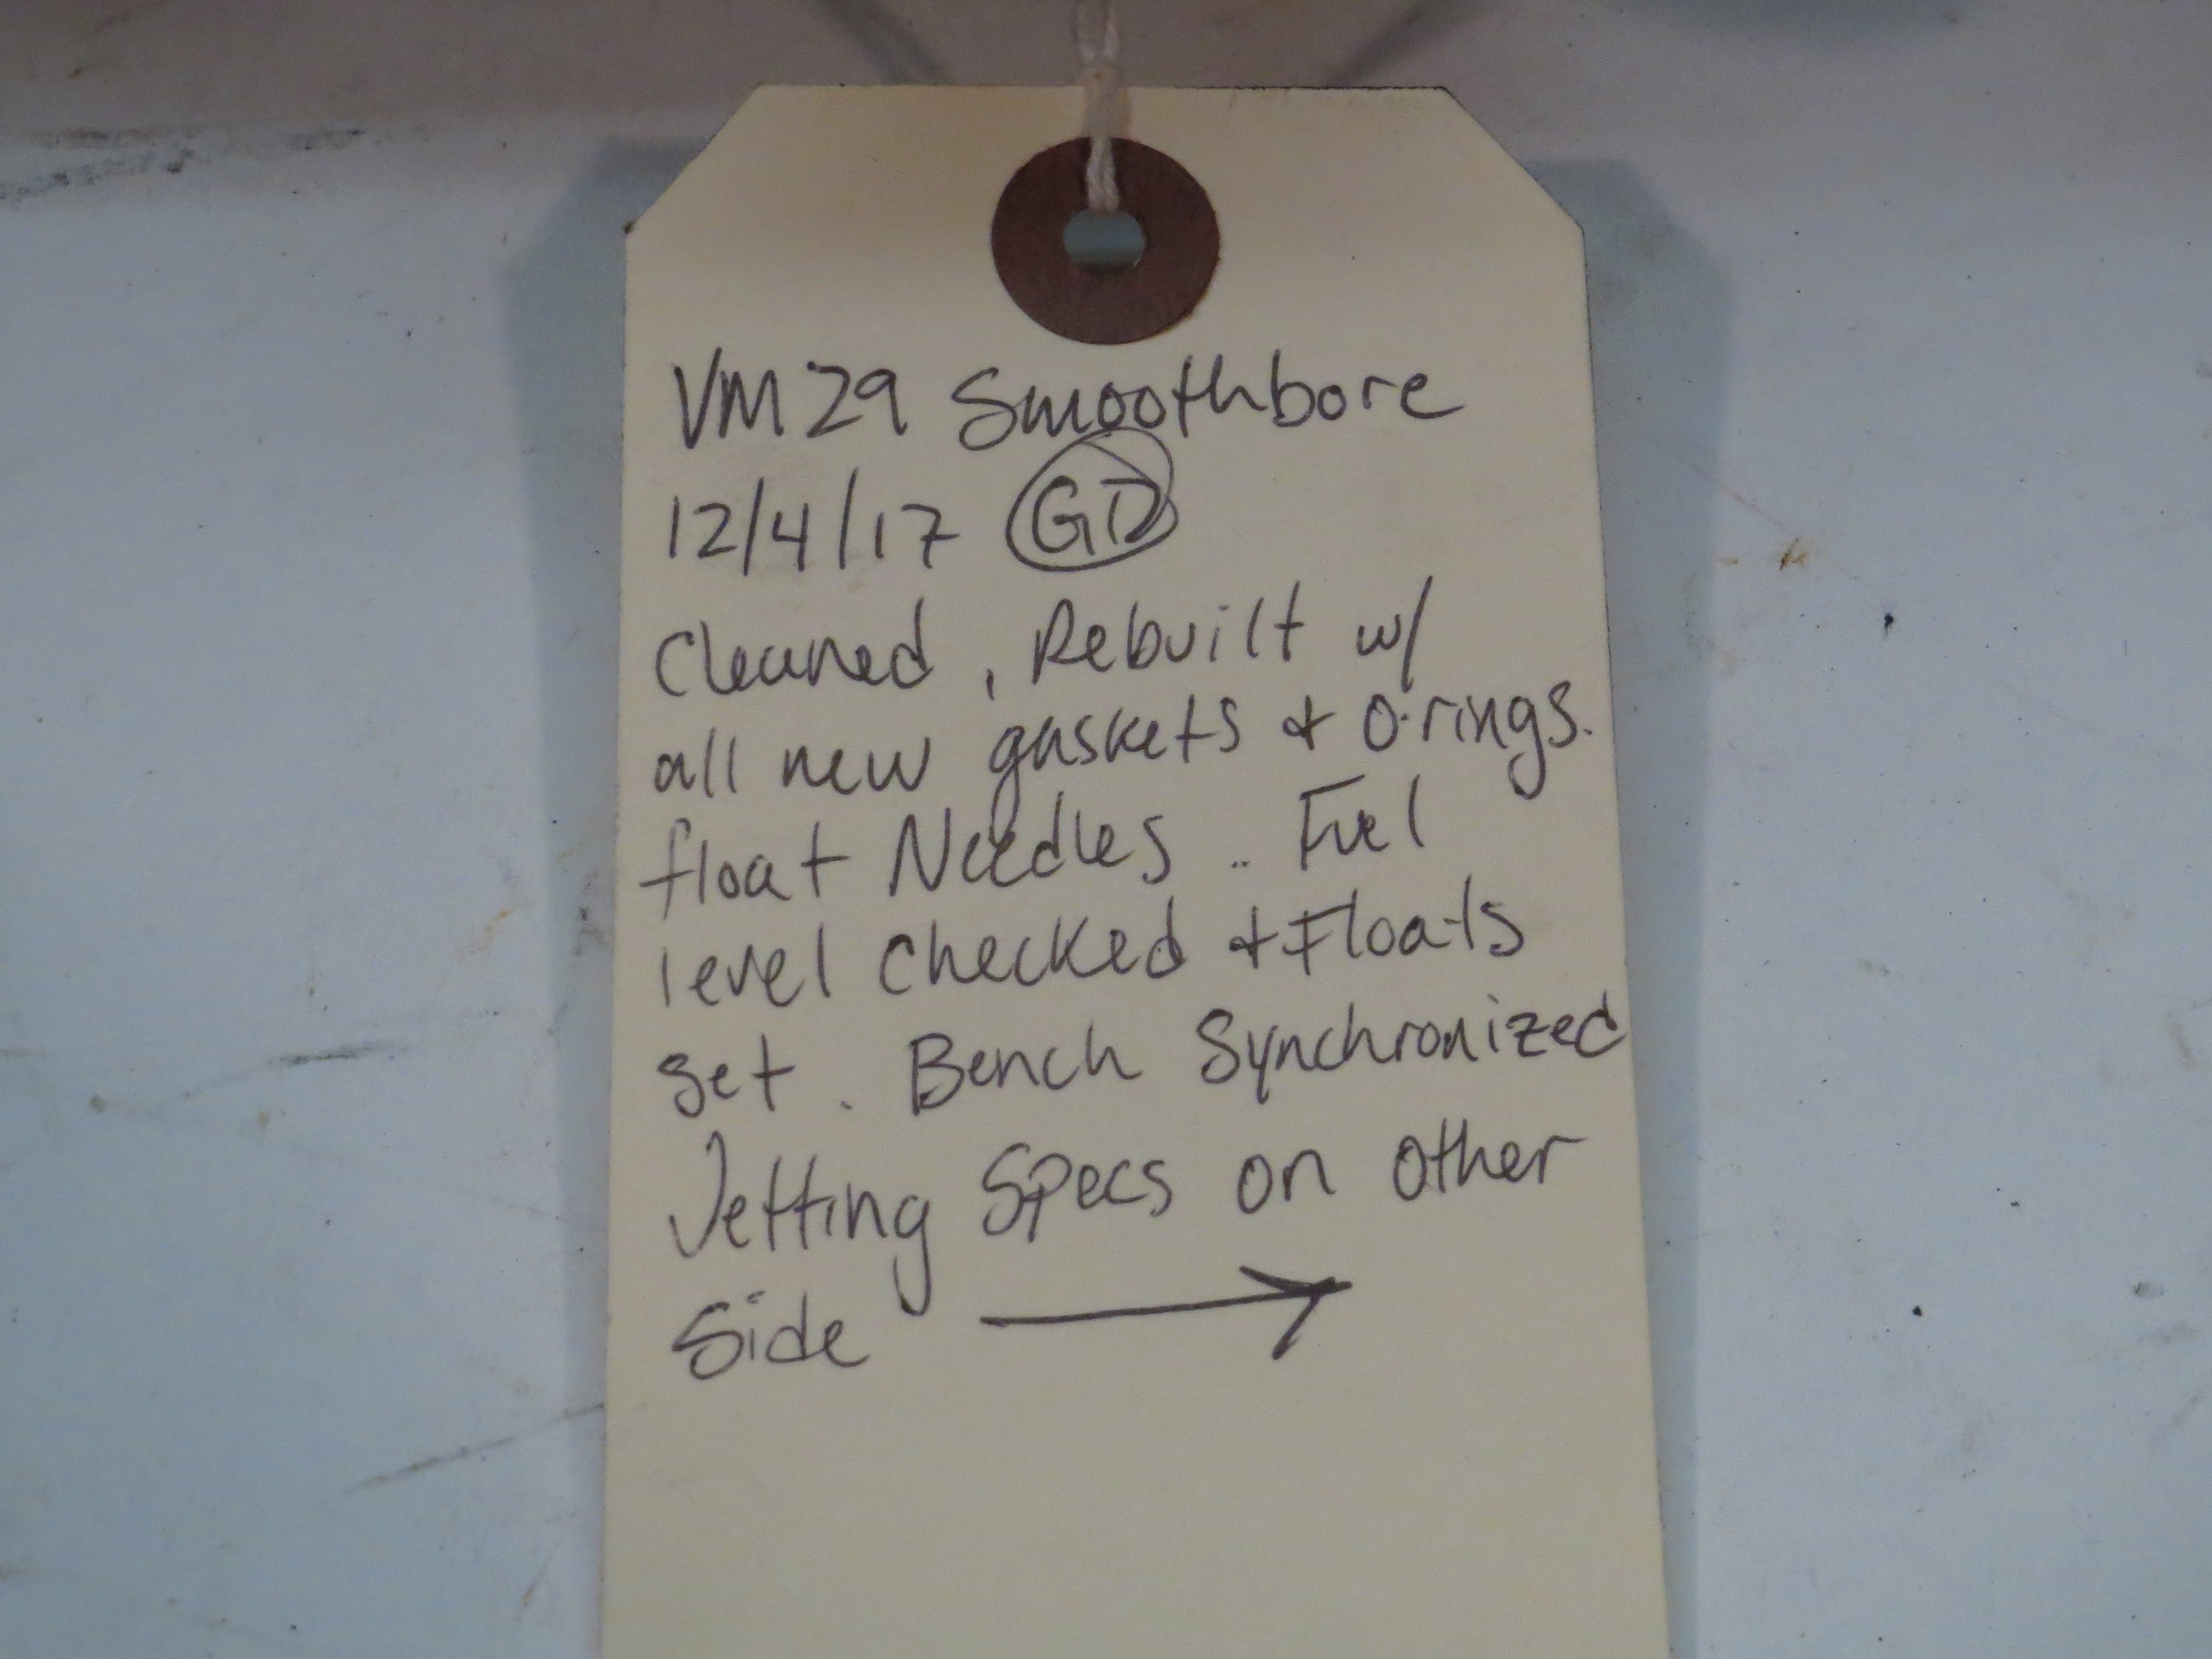 VM29 Smoothbore
12/4/17 GD
Cleaned, Rebuilt w/
all new gaskets & O-rings.
float Needles.. Fuel
level checked & Floats
set. Bench Synchronized
Jetting Specs on other
Side →